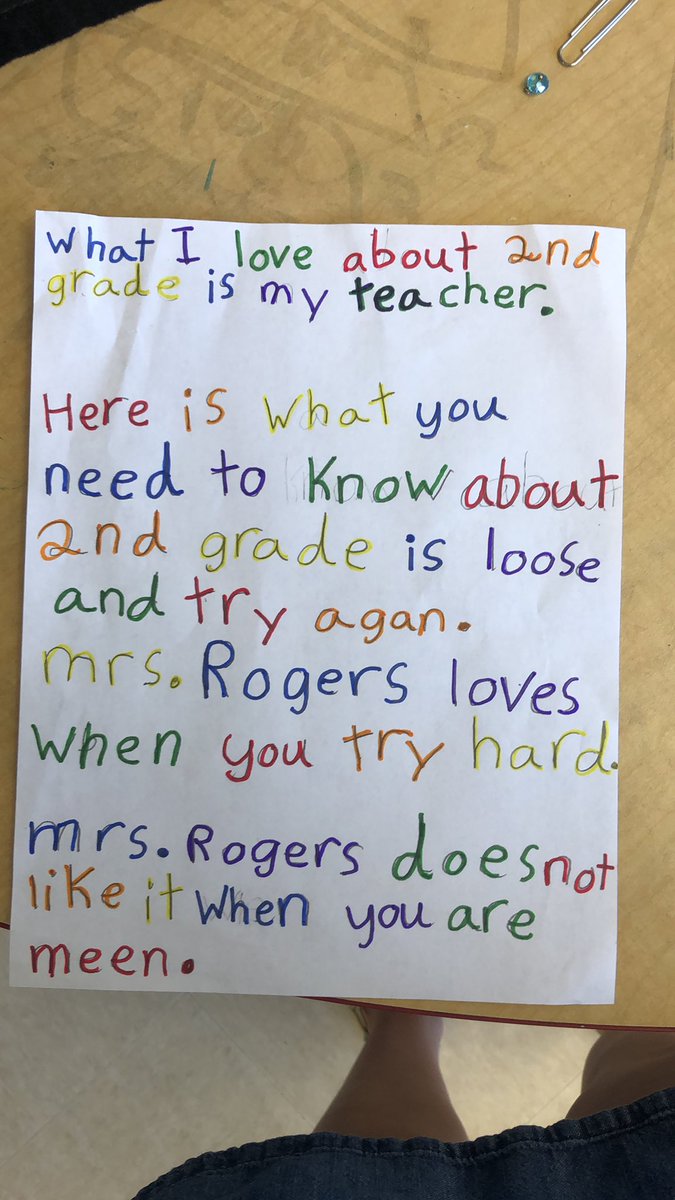 what I love about 2nd
grade is my teacher.
Here is what you
need to know about
2nd grade is loose
and try agan.
mrs. Rogers loves
when you try hard.
mrs. Rogers does not
like it when you are
meen.